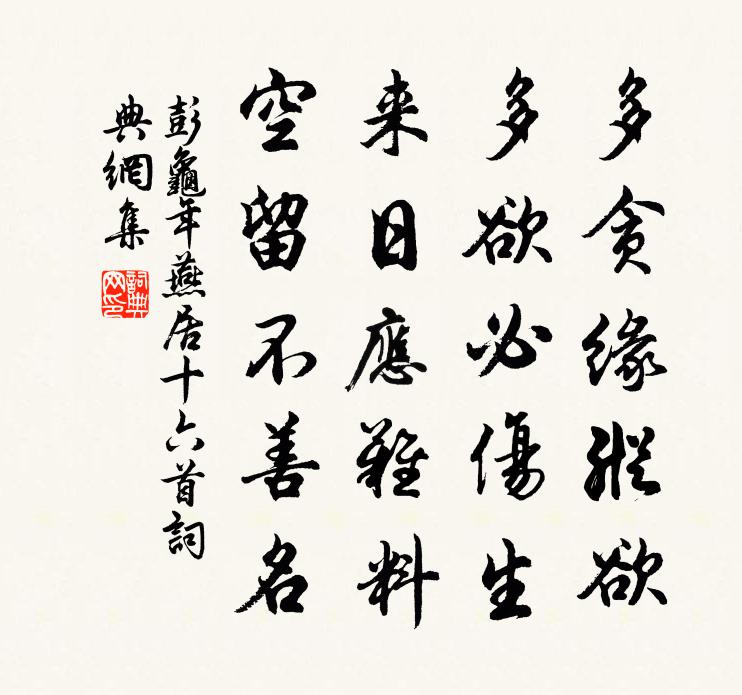 多貪緣縱欲
多欲必傷生
来日應難料
空留不善名
彭龜年燕居十六首詞
典網集
詞典網印